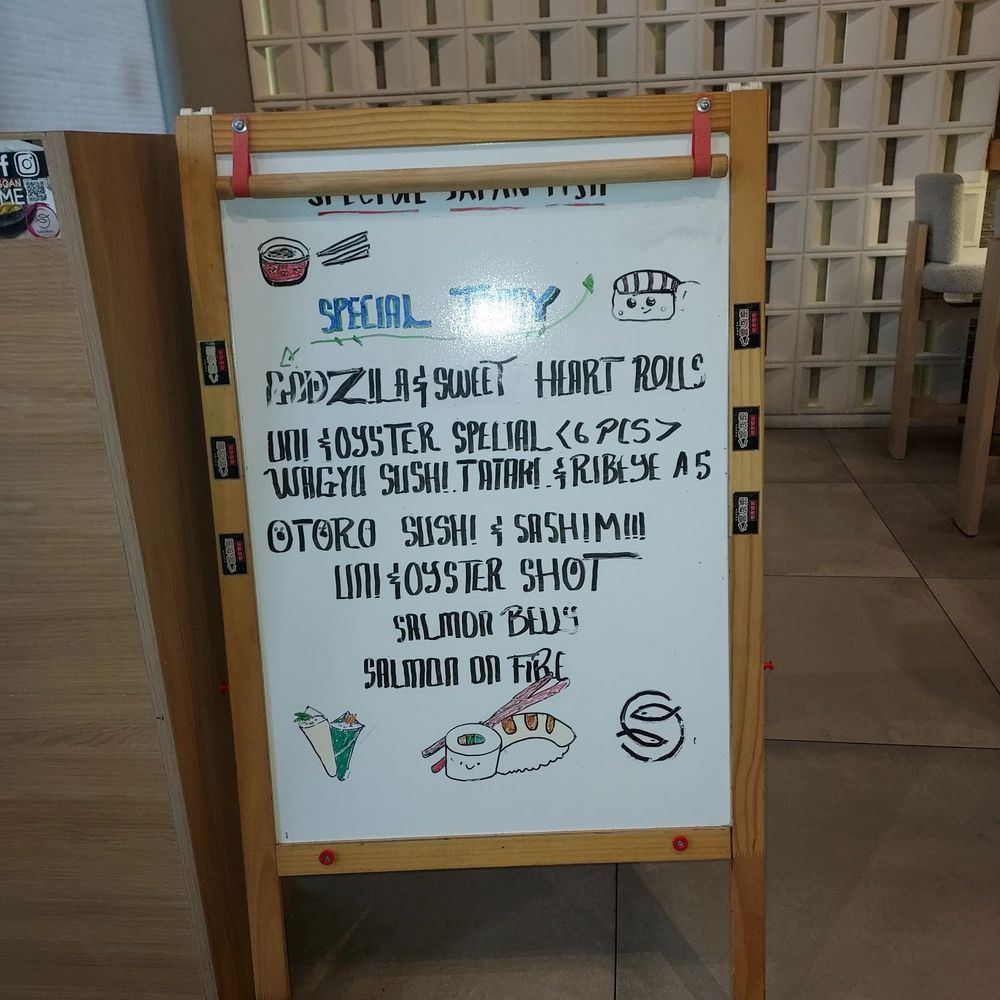 SPECIAL JAPAN FISH
SPECIAL TODAY
GODZILA & SWEET HEART ROLLS
UNI & OYSTER SPECIAL <6 PCS>
WAGYU SUSHI. TATAKI. & RIBEYE A5
OTORO SUSHI & SASHIMI!!
UNI & OYSTER SHOT
SALMON BELLS
SALMON ON FIRE
SCAN
ME